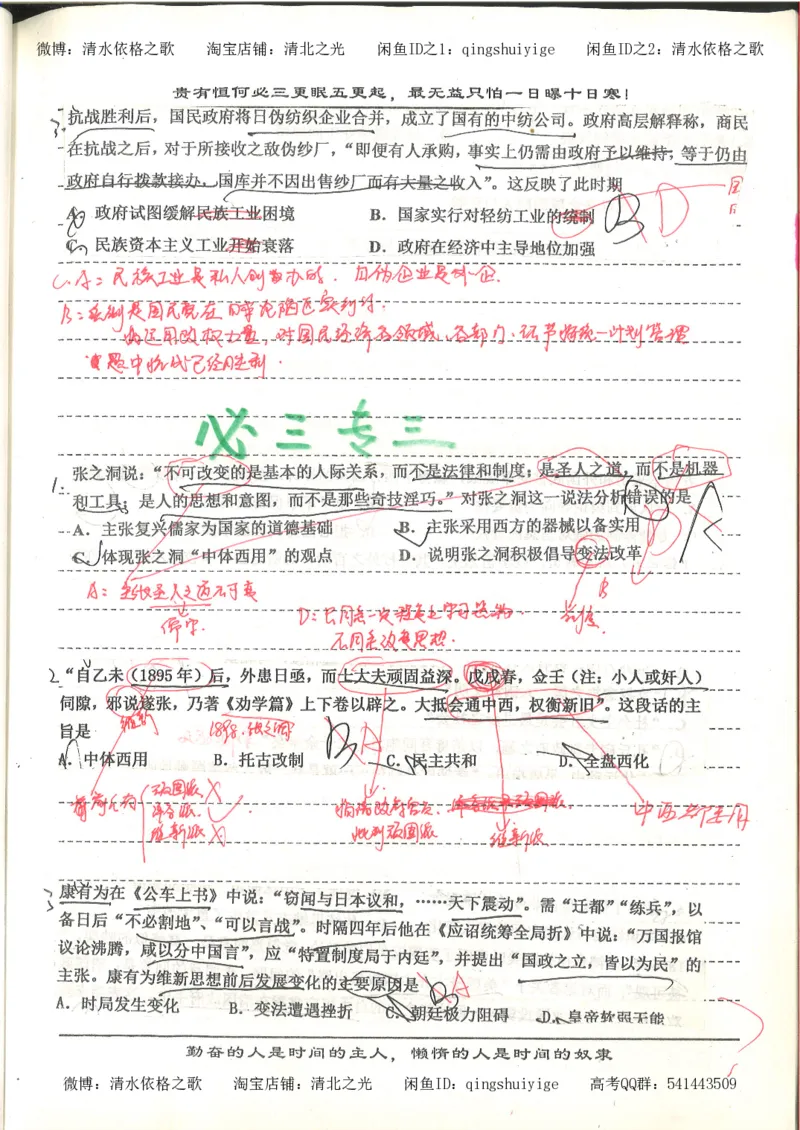 微博：清水依格之歌 淘宝店铺：清北之光 闲鱼ID之1：qingshuiyige 闲鱼ID之2：清水依格之歌
贵有恒何必三更眠五更起，最无益只怕一日曝十日寒！
3. 抗战胜利后，国民政府将日伪纺织企业合并，成立了国有的中纺公司。政府高层解释称，商民
在抗战之后，对于所接收之敌伪纱厂，“即便有人承购，事实上仍需由政府予以维持；等于仍由
政府自行拨款接办，国库并不因出售纱厂而有大量之收入”。这反映了此时期
A．政府试图缓解民族工业困境 B．国家实行对轻纺工业的统制 B D
C．民族资本主义工业开始衰落 D．政府在经济中主导地位加强
A：民族工业是私人创办的，日伪企业是外企.
B：统制是国民政府在
运用政权力量，对国民经济各领域、各部门、环节 统一计划管理
题中抗战已经胜利.
必三专三
1. 张之洞说：“不可改变的是基本的人际关系，而不是法律和制度；是圣人之道，而不是机器
和工具；是人的思想和意图，而不是那些奇技淫巧。”对张之洞这一说法分析错误的是
A．主张复兴儒家为国家的道德基础 B．主张采用西方的器械以备实用
C．体现张之洞“中体西用”的观点 D．说明张之洞积极倡导变法改革
A：主张圣人之道不可变
儒家.
B
制度.
不用来改变思想.
2. “自乙未（1895 年）后，外患日亟，而士大夫顽固益深。戊戌春，佥壬（注：小人或奸人）
伺隙，邪说遂张，乃著《劝学篇》上下卷以辟之。大抵会通中西，权衡新旧”。这段话的主
旨是 维新 1898.张之洞
B A
A．中体西用 B．托古改制 C．民主共和 D．全盘西化
顽固派 ×
洋务派 ✓
维新派 ×
批判顽固派
维新派
3. 康有为在《公车上书》中说：“窃闻与日本议和，……天下震动”。需“迁都”“练兵”，以
备日后“不必割地”、“可以言战”。时隔四年后他在《应诏统筹全局折》中说：“万国报馆
议论沸腾，咸以分中国言”，应“特置制度局于内廷”，并提出“国政之立，皆以为民”的
主张。康有为维新思想前后发展变化的主要原因是 B A
A．时局发生变化 B．变法遭遇挫折 C．朝廷极力阻碍 D．皇帝软弱无能
勤奋的人是时间的主人，懒惰的人是时间的奴隶
微博：清水依格之歌 淘宝店铺：清北之光 闲鱼ID：qingshuiyige 高考QQ群：541443509